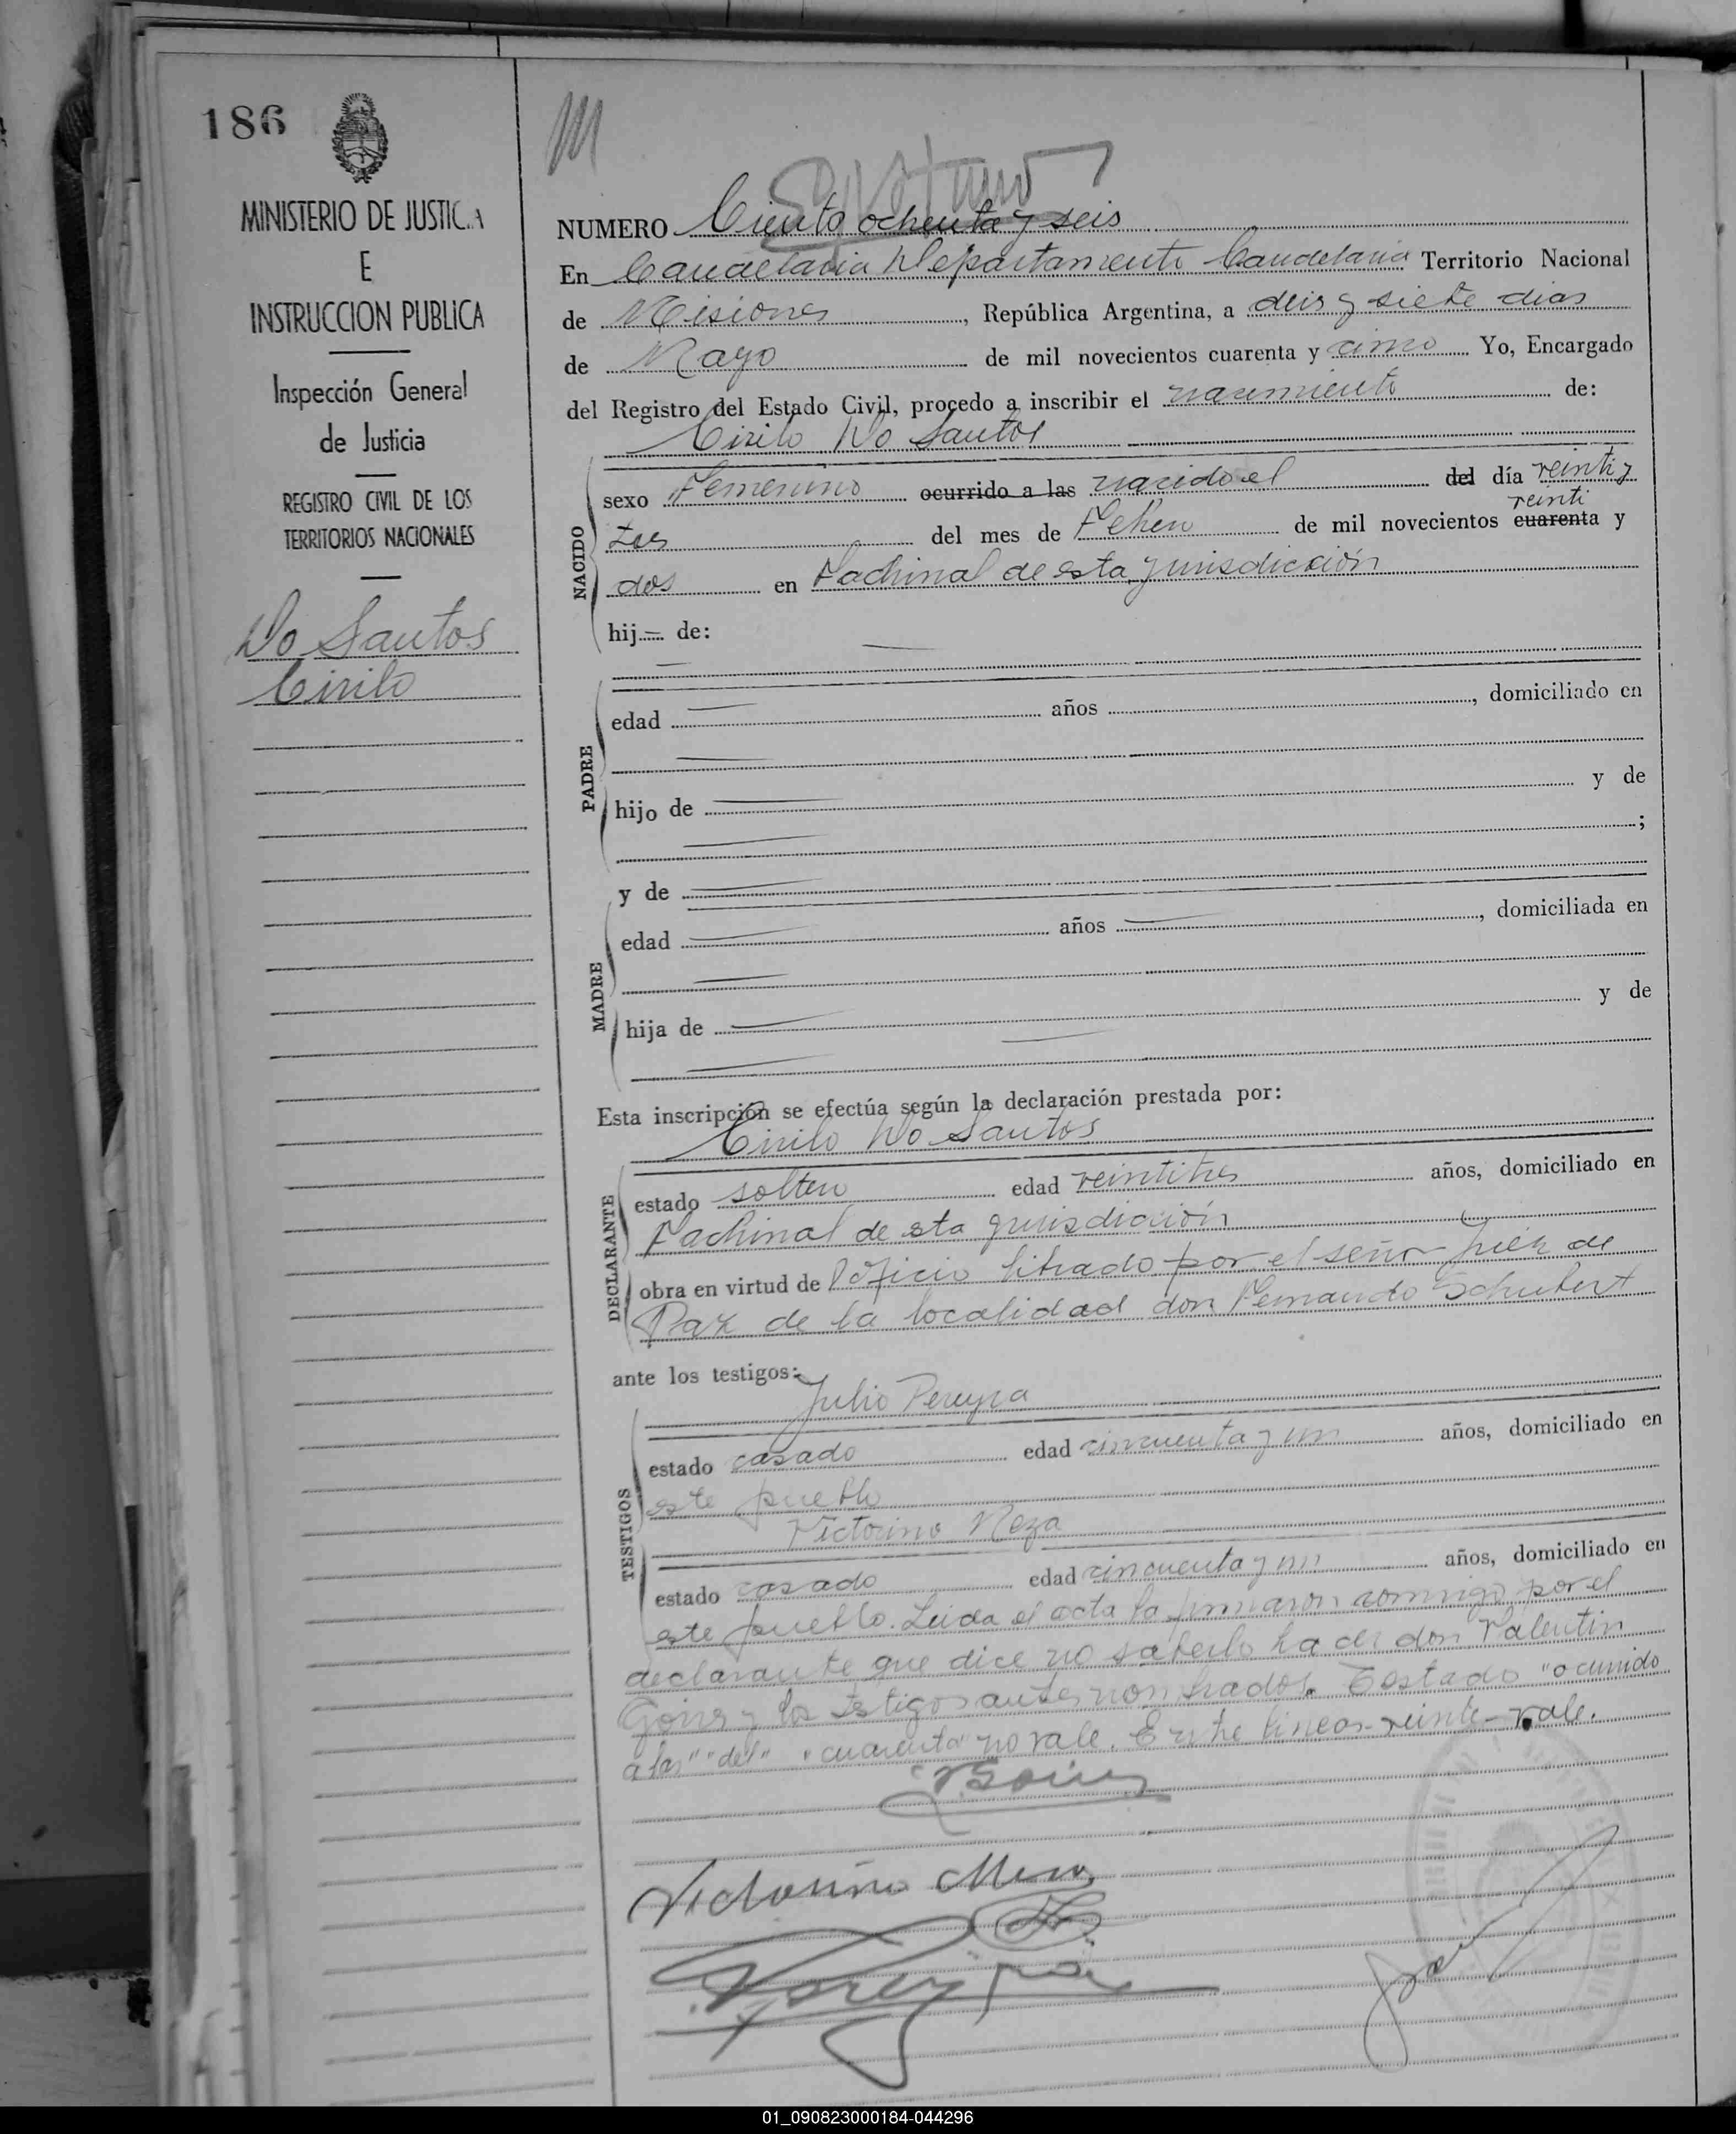 186
MINISTERIO DE JUSTICIA
E
INSTRUCCION PUBLICA
Inspección General
de Justicia
REGISTRO CIVIL DE LOS
TERRITORIOS NACIONALES
Do Santos
Cirilo
NUMERO Ciento ochenta y seis
En Candelaria Departamento Candelaria Territorio Nacional
de Misiones, República Argentina, a diis y siete dias
de Mayo de mil novecientos cuarenta y cinco Yo, Encargado
del Registro del Estado Civil, procedo a inscribir el nacimiento de:
Cirilo Do Santos
NACIDO
sexo Femenino ocurrido a las nacido el del día veinti y
veinti
tres del mes de Febrero de mil novecientos cuarenta y
dos en Fachinal de esta jurisdicción
hij— de:
PADRE
edad — años, domiciliado en
hijo de — y de
— ;
y de —
MADRE
edad — años —, domiciliada en
hija de — y de
Esta inscripción se efectúa según la declaración prestada por:
Cirilo Do Santos
DECLARANTE
estado soltero edad veintitres años, domiciliado en
Fachinal de esta jurisdicción
obra en virtud de Oficio librado por el señor Juez de
Paz de la localidad don Fernando Schubert
ante los testigos:
Julio Pereyra
TESTIGOS
estado casado edad cincuenta y un años, domiciliado en
este pueblo
Victorino Meza
estado casado edad cincuenta y un años, domiciliado en
este pueblo. Leida el acta la firmaron conmigo por el
declarante que dice no saberlo hacer don Valentin
y los testigos antes nombrados. Testado "ocurrido
a las" "del" "cuarenta" no vale. Entre lineas-veinte-vale.
Victorino Meza
Pereyra
01_090823000184-044296